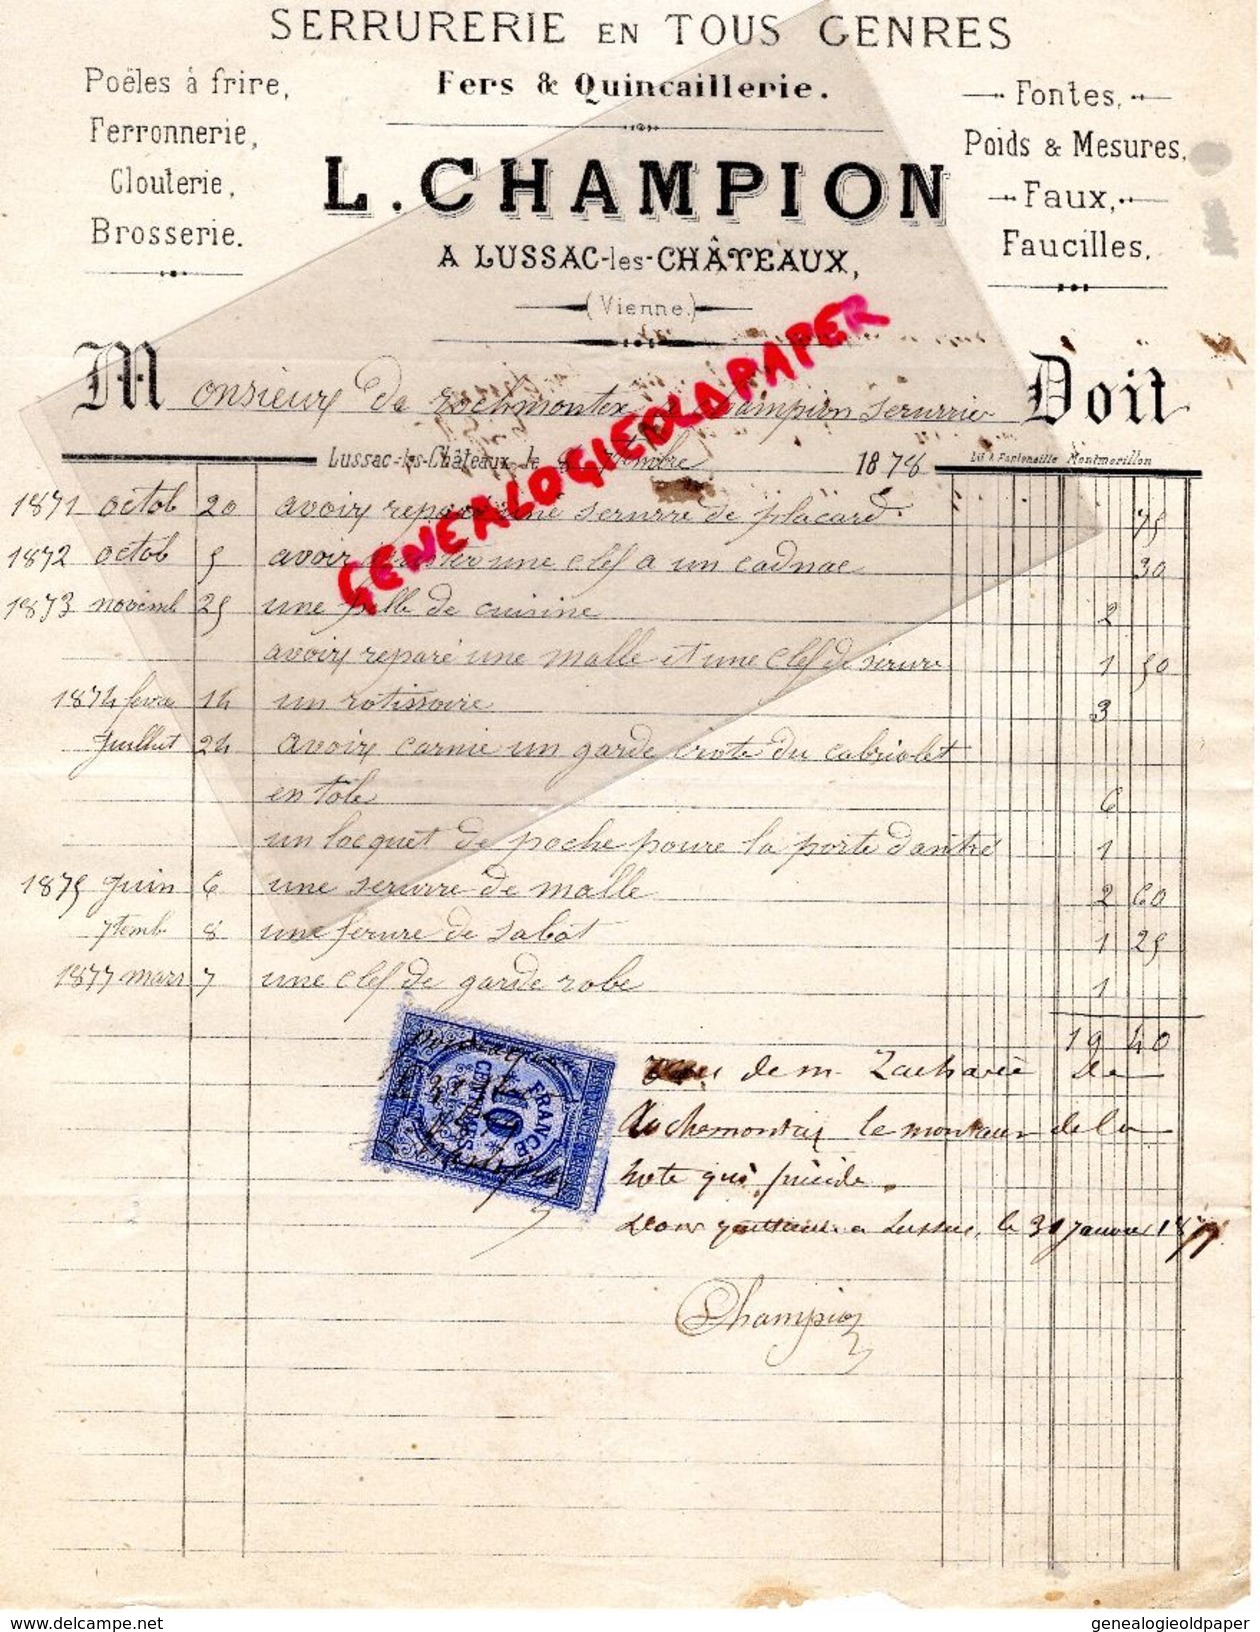 SERRURERIE EN TOUS GENRES
Poëles à frire,
Ferronnerie,
Clouterie,
Brosserie.
Fers & Quincaillerie.
Fontes,
Poids & Mesures,
Faux,
Faucilles,
L. CHAMPION
A LUSSAC-les-CHÂTEAUX,
(Vienne.)
Monsieur De Rochmontex a Champion serurrier Doit
Lussac-les-Châteaux le 8 7tembre 1878
Lit. A. Fontenaille Montmorillon
1871 octob 20 avoir reparé une serurre de placard. 75
1872 octob 5 avoir une clef a un cadnac 30
1873 novemb 25 une pelle de cuisine 2
avoir reparé une malle et une clef de serure 1 50
1874 fevrie 14 un rotissoire 3
Juillet 24 avoir garnie un garde crote du cabriolet
en tole 6
un locquet de poche poure la porte dantré 1
1875 Juin 6 une serurre de malle 2 60
7temb 8 une ferure de sabot 1 25
1877 mars 7 une clef de garde robe 1
19 40
de m. Zacharie de
Rochemonteix le montant de la
note qui précède.
a Lussac, le 31 Janvier 18
Champion
10 CENTIMES
FRANCE
GENEALOGIEOLDPAPER
www.delcampe.net
genealogieoldpaper